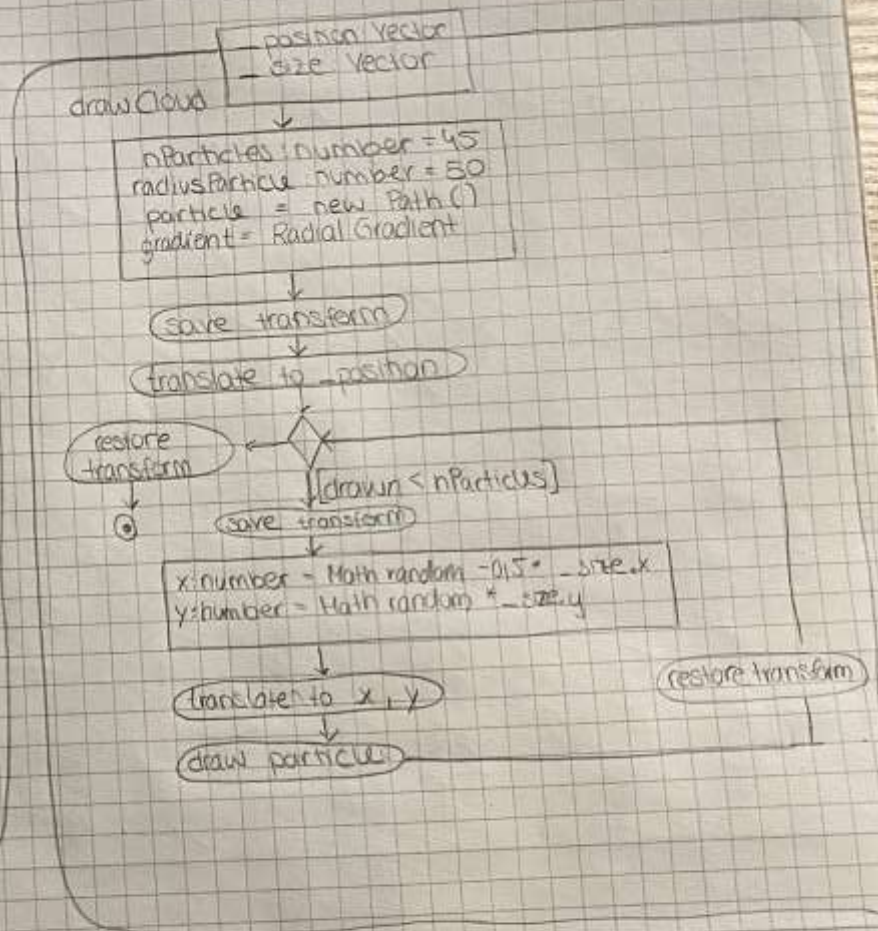 _position Vector
_size Vector
drawCloud
nParticles: number = 45
radiusParticle: number = 50
particle = new Path()
gradient = Radial Gradient
save transform
translate to _position
restore
transform
[drawn < nParticles]
save transform
x:number = Math random -0,5 * _size.x
y:number = Math random * _size.y
translate to x, y
restore transform
draw particle